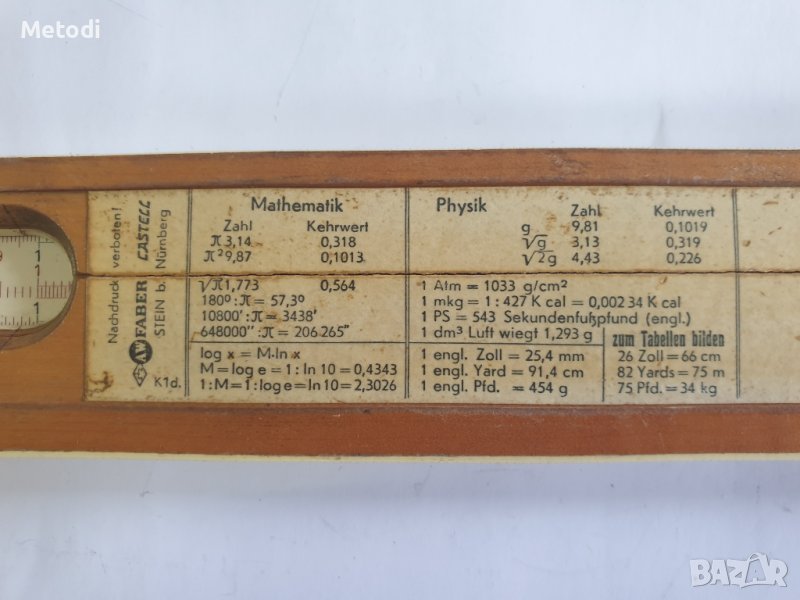 Metodi
Nachdruck verboten!
AW FABER CASTELL
STEIN b. Nürnberg
K1d.
Mathematik
Zahl Kehrwert
π 3,14 0,318
π² 9,87 0,1013
√π 1,773 0,564
180° : π = 57,3°
10800' : π = 3438'
648000'' : π = 206265''
log x = M·ln x
M = log e = 1 : ln 10 = 0,4343
1 : M = 1 : log e = ln 10 = 2,3026
Physik
Zahl Kehrwert
g 9,81 0,1019
√g 3,13 0,319
√2g 4,43 0,226
1 Atm = 1033 g/cm²
1 mkg = 1 : 427 K cal = 0,002 34 K cal
1 PS = 543 Sekundenfußpfund (engl.)
1 dm³ Luft wiegt 1,293 g
1 engl. Zoll = 25,4 mm
1 engl. Yard = 91,4 cm
1 engl. Pfd. = 454 g
zum Tabellen bilden
26 Zoll = 66 cm
82 Yards = 75 m
75 Pfd. = 34 kg
1
1
1
BAZAR